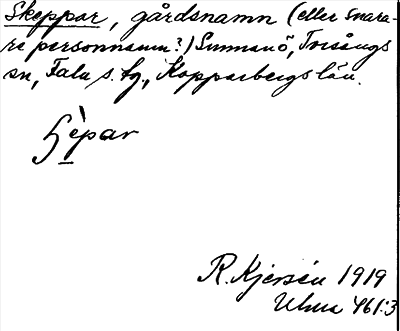 Skeppar, gårdsnamn (eller snara-
re personnamn?) Sunnanö, Torsångs
sn, Falu s. tg., Kopparbergs län.
Se̠̋par
R. Kjersén 1919
Ulma 461:3